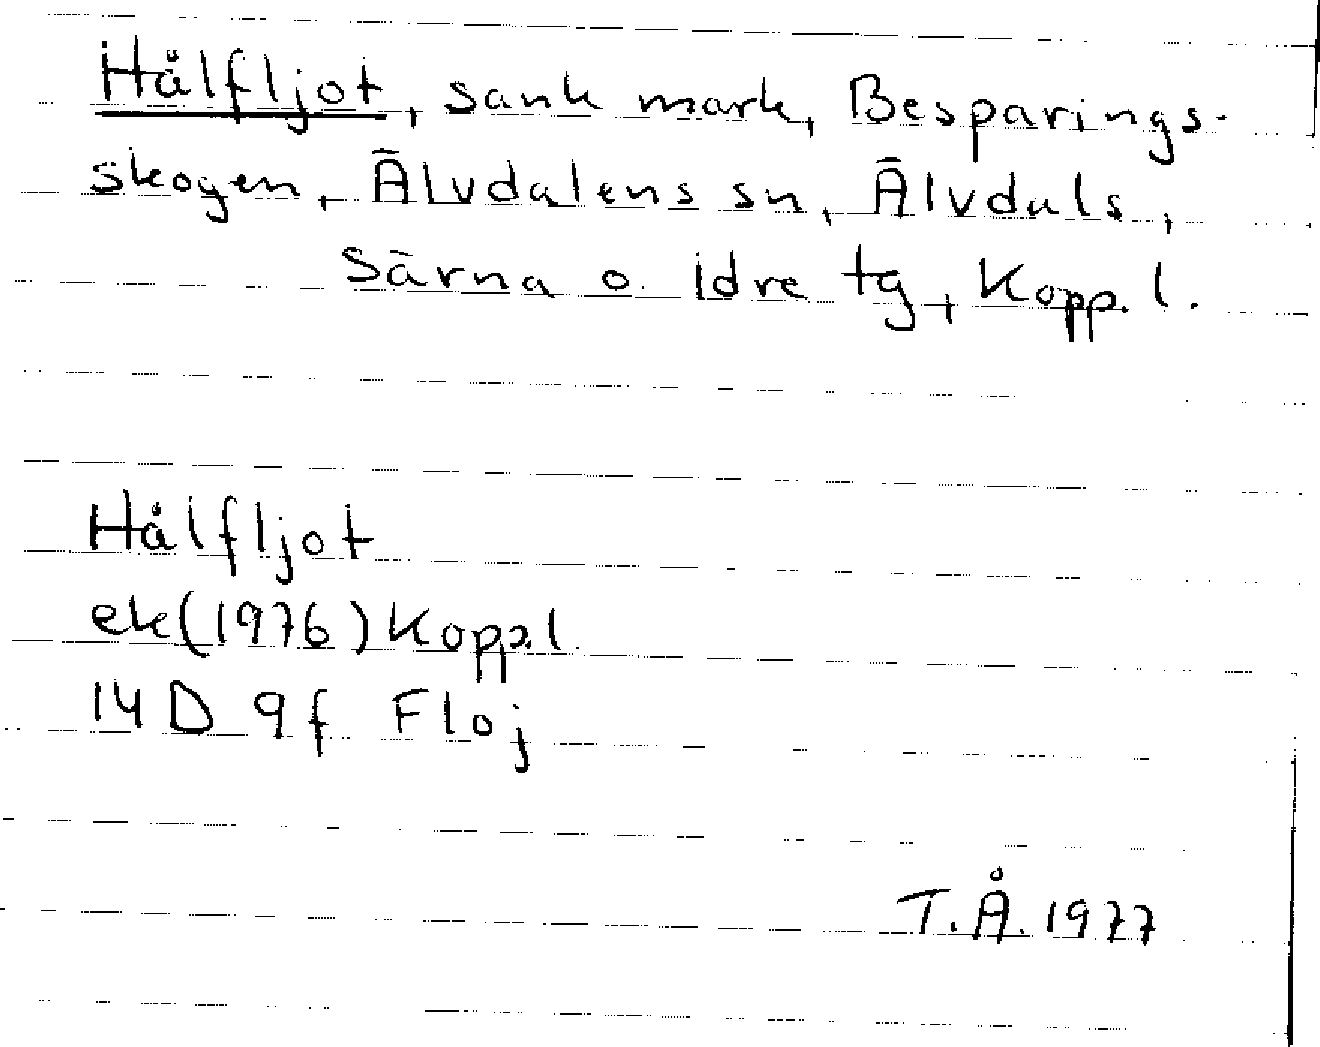 Hålfljot, sank mark, Besparings-
skogen, Älvdalens sn, Älvdals,
Särna o. Idre tg, Kopp. l.
Hålfljot
ek (1976) Kopp.l.
14 D 9f Floj
T.Å. 1977